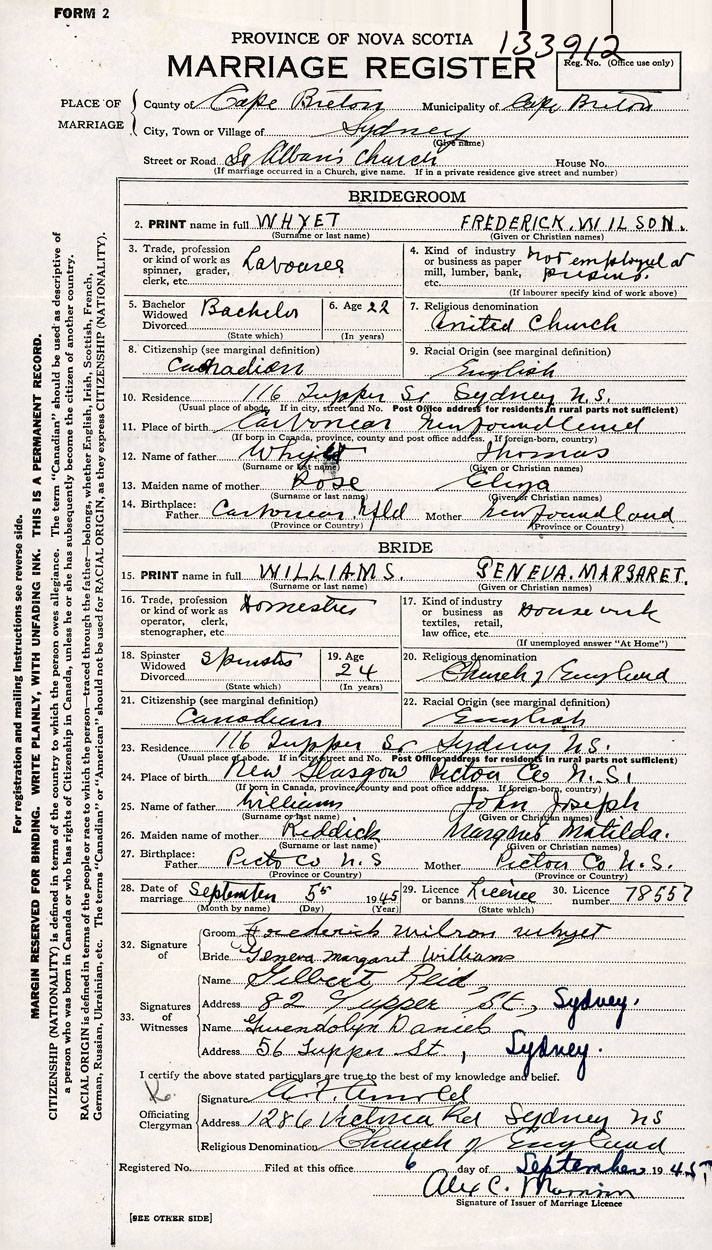 FORM 2
PROVINCE OF NOVA SCOTIA 133912
MARRIAGE REGISTER Reg. No. (Office use only)
PLACE OF MARRIAGE
County of Cape Breton Municipality of Cape Breton
City, Town or Village of Sydney
(Give name)
Street or Road St Alban's Church House No.
(If marriage occurred in a Church, give name. If in a private residence give street and number)
BRIDEGROOM
2. PRINT name in full WHYET FREDERICK. WILSON.
(Surname or last name) (Given or Christian names)
3. Trade, profession or kind of work as spinner, grader, clerk, etc. Labourer
4. Kind of industry or business as paper mill, lumber, bank, etc. not employed at present.
(If labourer specify kind of work above)
5. Bachelor Widowed Divorced Bachelor (State which)
6. Age 22 (In years)
7. Religious denomination United Church
8. Citizenship (see marginal definition) Canadian
9. Racial Origin (see marginal definition) English
10. Residence 116 Tupper St Sydney N.S.
(Usual place of abode. If in city, street and No. Post Office address for residents in rural parts not sufficient)
11. Place of birth Carbonear Newfoundland
(If born in Canada, province, county and post office address. If foreign-born, country)
12. Name of father Whyet Thomas
(Surname or last name) (Given or Christian names)
13. Maiden name of mother Rose Eliza
(Surname or last name) (Given or Christian names)
14. Birthplace: Father Carbonear Nfld Mother Newfoundland
(Province or Country) (Province or Country)
BRIDE
15. PRINT name in full WILLIAMS. GENEVA. MARGARET.
(Surname or last name) (Given or Christian names)
16. Trade, profession or kind of work as operator, clerk, stenographer, etc. Domestic
17. Kind of industry or business as textiles, retail, law office, etc. House work
(If unemployed answer "At Home")
18. Spinster Widowed Divorced Spinster (State which)
19. Age 24 (In years)
20. Religious denomination Church of England
21. Citizenship (see marginal definition) Canadian
22. Racial Origin (see marginal definition) English
23. Residence 116 Tupper St Sydney N.S.
(Usual place of abode. If in city street and No. Post Office address for residents in rural parts not sufficient)
24. Place of birth New Glasgow Pictou Co N.S.
(If born in Canada, province, county and post office address. If foreign-born, country)
25. Name of father Williams John Joseph
(Surname or last name) (Given or Christian names)
26. Maiden name of mother Reddick Margaret Matilda.
(Surname or last name) (Given or Christian names)
27. Birthplace: Father Pictou Co N.S Mother Pictou Co N.S.
(Province or Country) (Province or Country)
28. Date of marriage September 5 1945
(Month by name) (Day) (Year)
29. Licence or banns Licence (State which)
30. Licence number 78557
32. Signature of
Groom Frederick Wilson Whyet
Bride Geneva Margaret Williams
33. Signatures of Witnesses
Name Gilbert Reid
Address 82 Tupper St., Sydney.
Name Gwendolyn Daniels
Address 56 Tupper St, Sydney.
I certify the above stated particulars are true to the best of my knowledge and belief.
Officiating Clergyman
Signature Arnold
Address 1286 Victoria Rd Sydney NS
Religious Denomination Church of England
Registered No. Filed at this office 6 day of September 1945
Alex C.
Signature of Issuer of Marriage Licence
[SEE OTHER SIDE]
For registration and mailing instructions see reverse side.
MARGIN RESERVED FOR BINDING. WRITE PLAINLY, WITH UNFADING INK. THIS IS A PERMANENT RECORD.
CITIZENSHIP (NATIONALITY) is defined in terms of the country to which the person owes allegiance. The term "Canadian" should be used as descriptive of
a person who was born in Canada or who has rights of Citizenship in Canada, unless he or she has subsequently become the citizen of another country.
RACIAL ORIGIN is defined in terms of the people or race to which the person—traced through the father—belongs, whether English, Irish, Scottish, French,
German, Russian, Ukrainian, etc. The terms "Canadian" or "American" should not be used for RACIAL ORIGIN, as they express CITIZENSHIP (NATIONALITY).